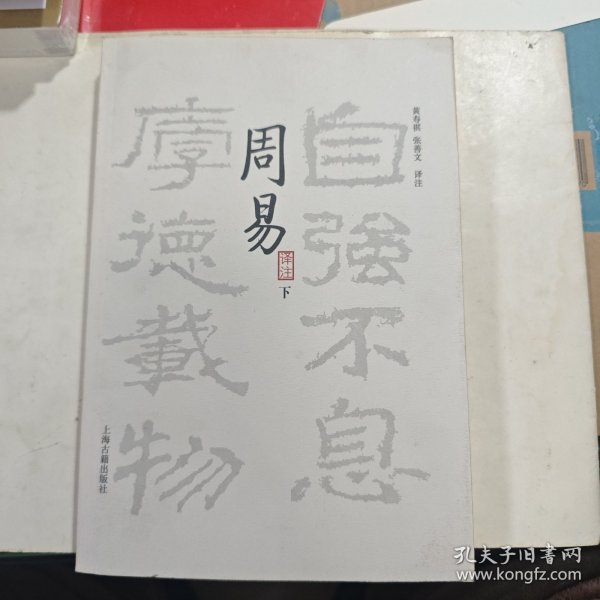 自強不息
厚德載物
黄寿祺 张善文 译注
周易
译注
下
上海古籍出版社
孔夫子旧书网
www.kongfz.com